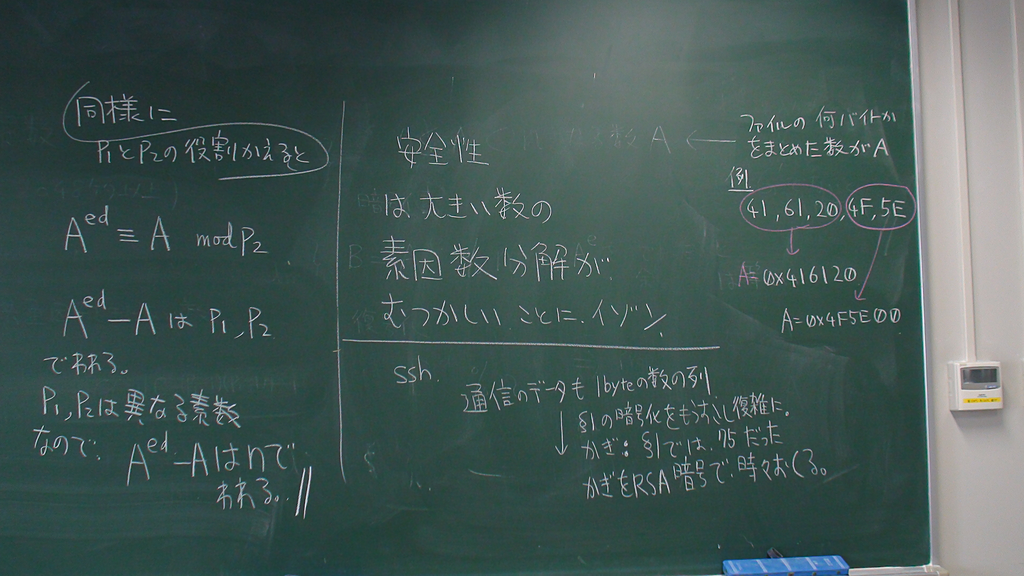 同様に
P₁とP₂の役割かえると
A^ed ≡ A mod P₂
A^ed − A は P₁, P₂
でわれる。
P₁, P₂は異なる素数
なので、
A^ed − A は n で
われる。//
安全性
は 大きい数の
素因数分解が
むつかしい ことに イゾン
ssh.
通信のデータも 1byteの数の列
↓ §1の暗号化をもう少し複雑に。
かぎ: §1では、75だった
かぎをRSA暗号で 時々おくる。
数 A ←
ファイルの 何バイトか
をまとめた数がA
例
41, 61, 20, 4F, 5E
A=0x416120
A=0x4F5E00